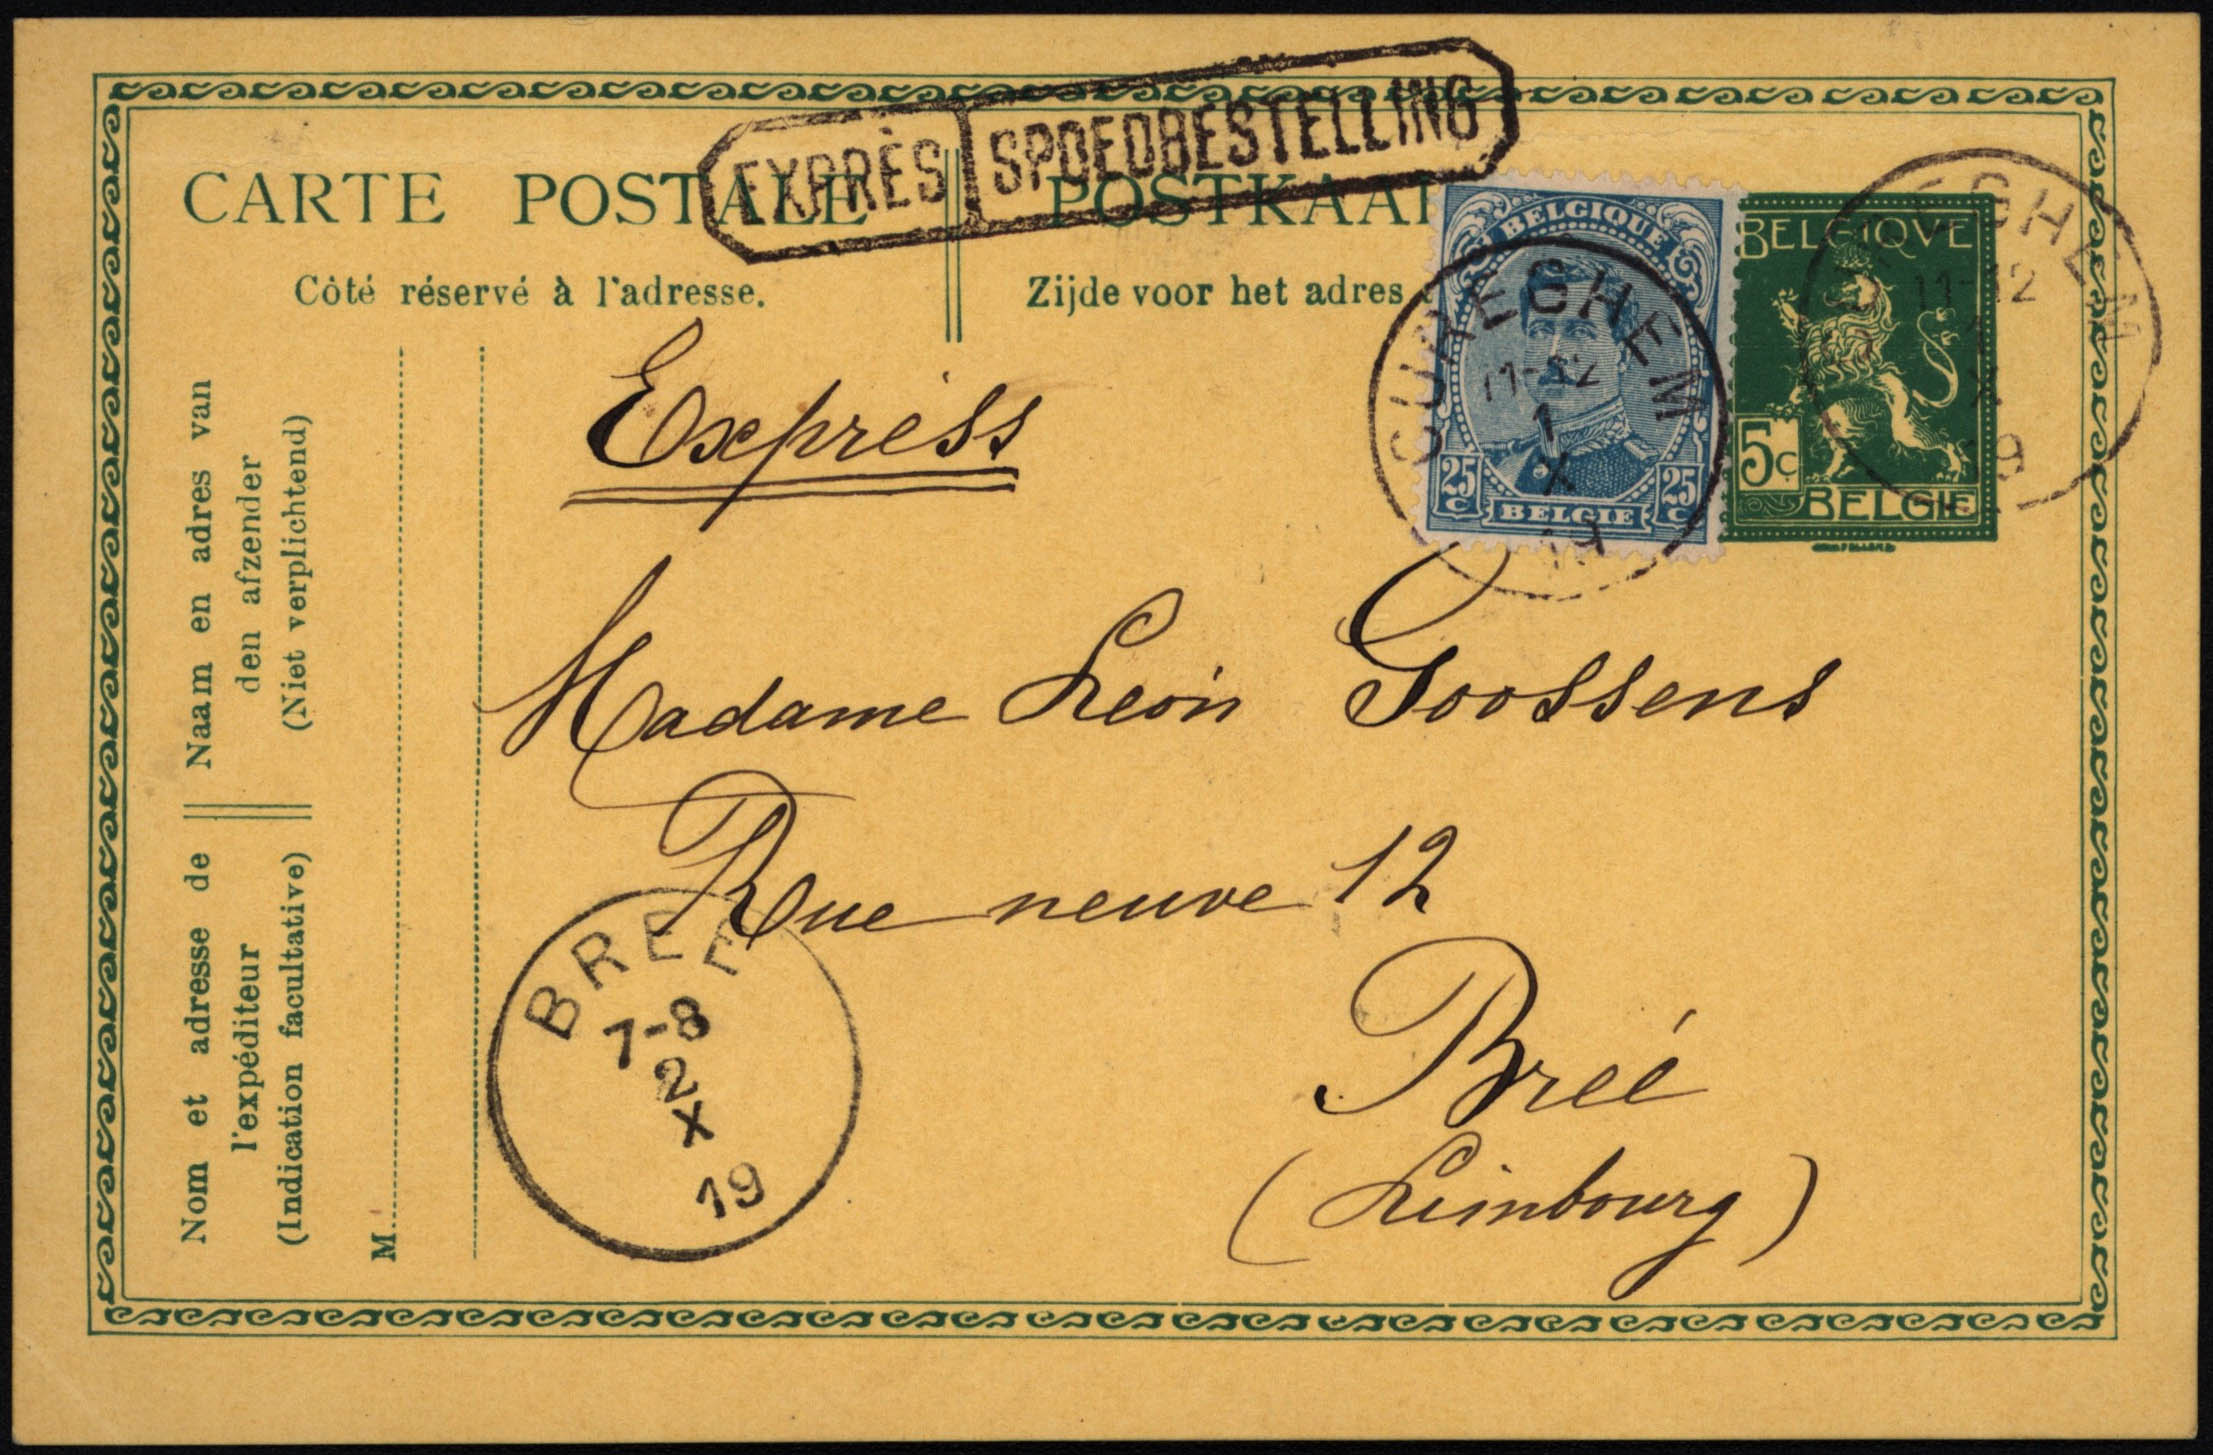 EXPRÈS SPOEDBESTELLING
CARTE POSTALE
Côté réservé à l'adresse.
Zijde voor het adres
BELGIQUE
25 c 25 c
BELGIE
BELGIQVE
5c
BELGIE
CUREGHEM
11-12
1
X
CUREGHEM
11-12
1
X
19
Express
Madame Léon Goossens
Rue neuve 12
Breé
(Limbourg)
BREE
7-8
2
X
19
Naam en adres van
den afzender
(Niet verplichtend)
Nom et adresse de
l'expéditeur
(Indication facultative)
M